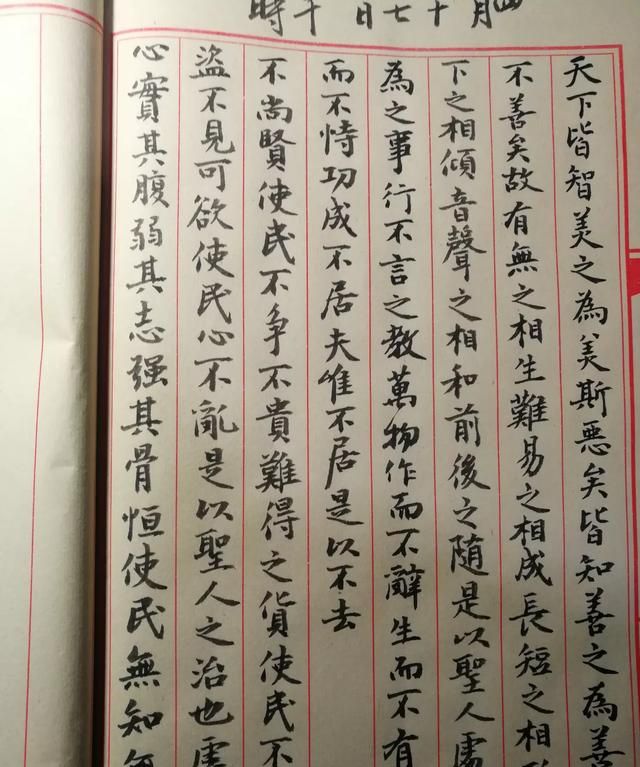 四月十七日十時
天下皆智美之為美斯惡矣皆知善之為善
不善矣故有無之相生難易之相成長短之相
下之相傾音聲之相和前後之随是以聖人處
為之事行不言之教萬物作而不辭生而不有
而不恃功成不居夫唯不居是以不去
不尚賢使民不争不貴難得之貨使民不
盜不見可欲使民心不亂是以聖人之治也
心實其腹弱其志强其骨恒使民無知